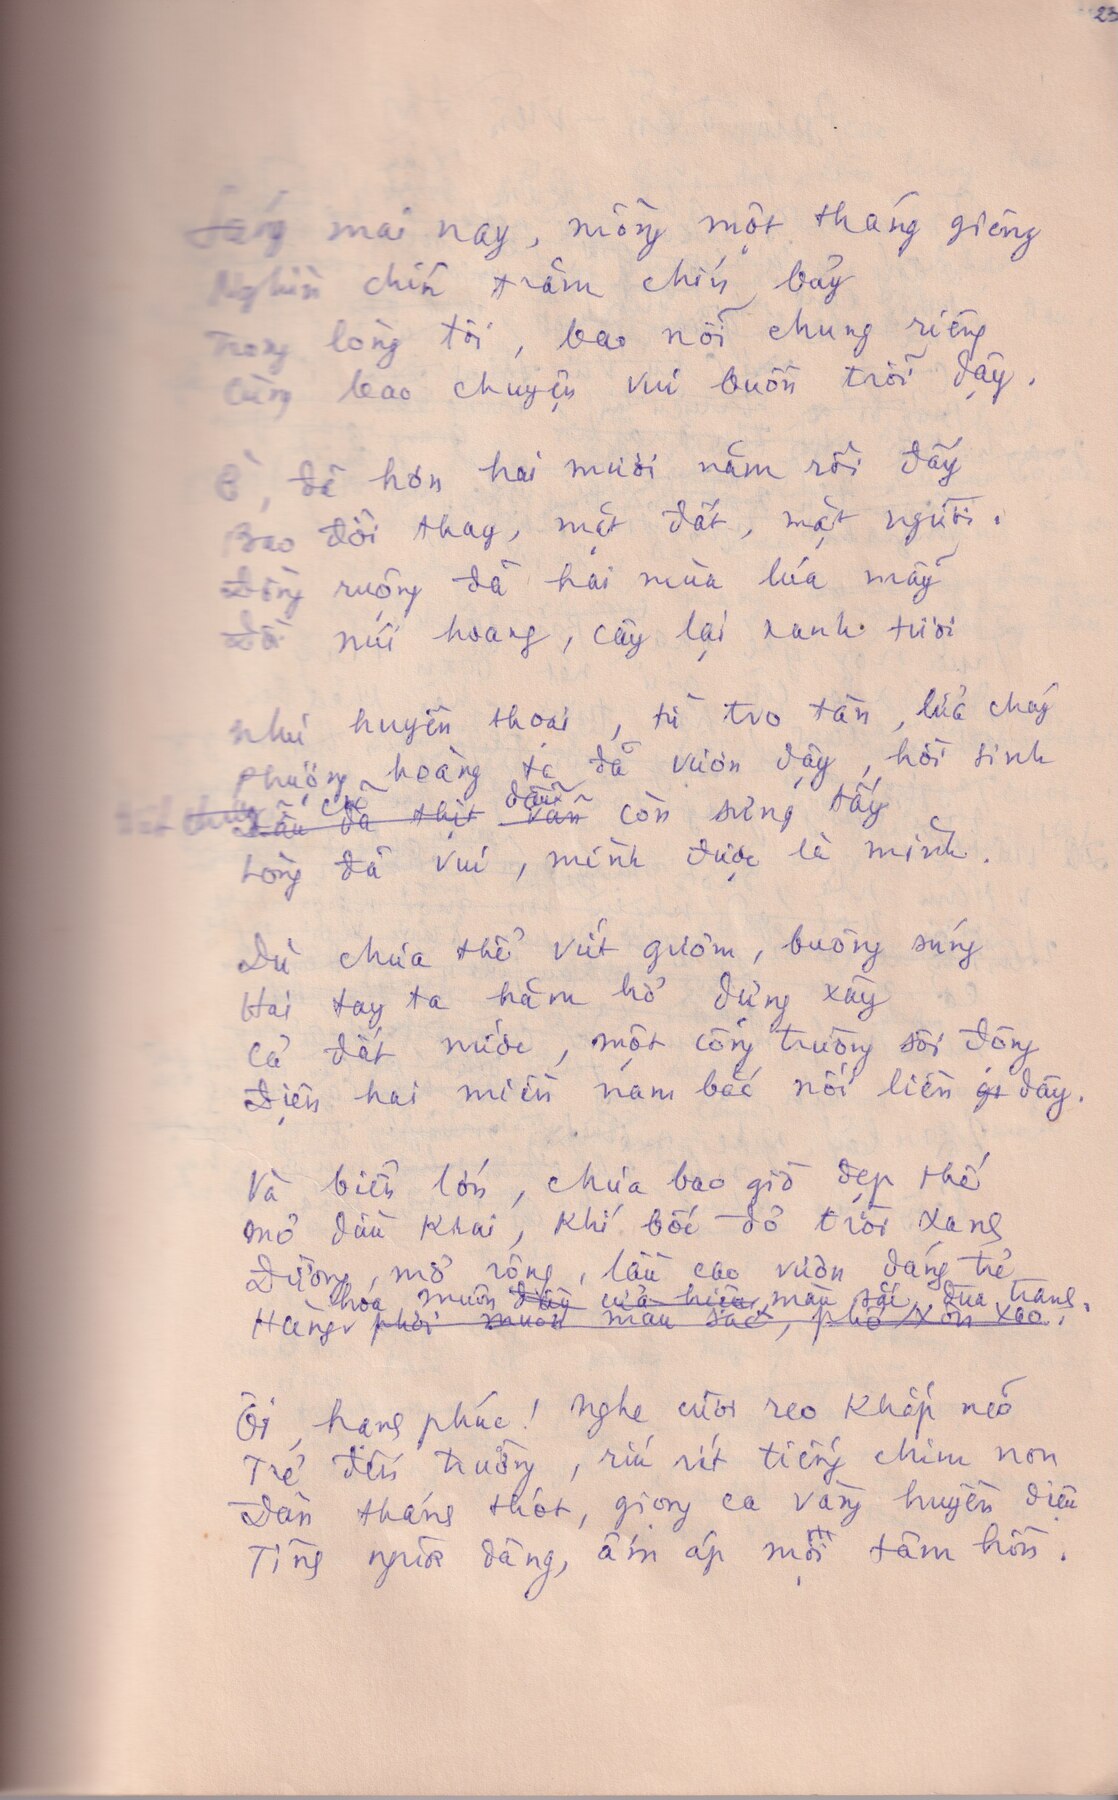 23
Sáng mai nay, mồng một tháng giêng
Nghìn chín trăm chín bảy
Trong lòng tôi, bao nỗi chung riêng
Cùng bao chuyện vui buồn trỗi dậy.
Ồ, đã hơn hai mươi năm rồi đấy
Bao đổi thay, mặt đất, mặt người.
Đồng ruộng đã hai mùa lúa mẩy
Đồi núi hoang, cây lại xanh tươi
Như huyền thoại, từ tro tàn, lửa cháy
Phượng hoàng ta đã vươn dậy, hồi sinh
Vết thương cũ dẫu
Dẫu da thịt vẫn còn sưng tấy
Lòng đã vui, mình được là mình.
Dù chưa thể vứt gươm, buông súng
Hai tay ta hăm hở dựng xây
Cả đất nước, một công trường sôi động
Điện hai miền nam bắc nối liền dây.
Và biển lớn, chưa bao giờ đẹp thế
Mỏ dầu khai, khí bốc đỏ trời xang
Đường, mở rộng, lầu cao vươn dáng trẻ
hóa muôn đầy cửa hiệu, màu sắc, đua trang.
Hàng phơi muôn màu sắc, phố xôn xao.
Ôi, hạnh phúc! Nghe cười reo khắp nẻo
Trẻ đến trường, ríu rít tiếng chim non
Đàn thánh thót, giọng ca vàng huyền diệu
Tình người dâng, ấm áp mỗi tâm hồn.